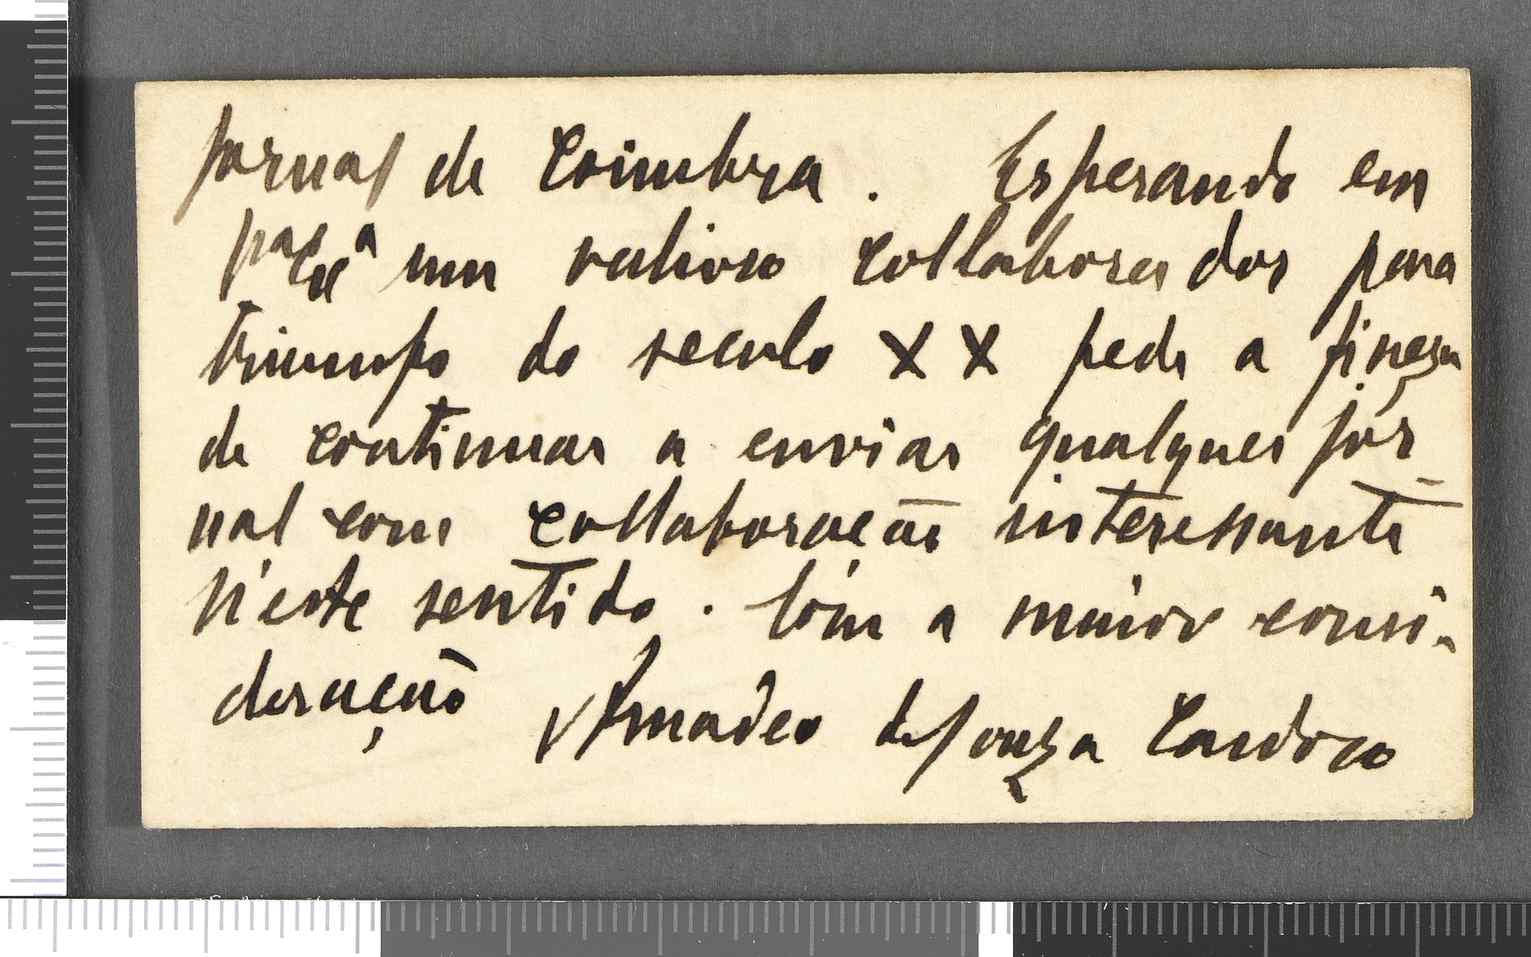 jornal de Coimbra. Esperando em
um valioso collaborador para
triumfo do seculo XX pede a fineza
de continuar a enviar qualquer jor-
nal com collaboracão interessante
n'este sentido. Com a maior consi-
deração Amadeo de Souza Cardoso